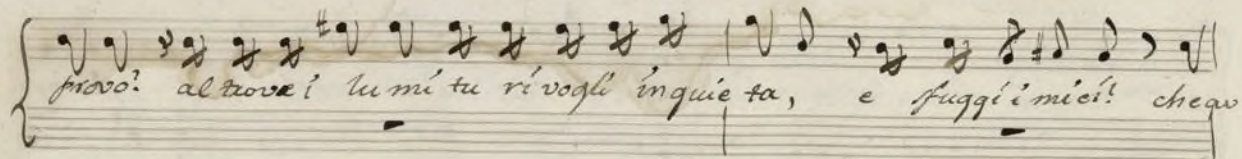 provo? altrove i lumi tu rivogli inquieta, e fuggi i miei! che av